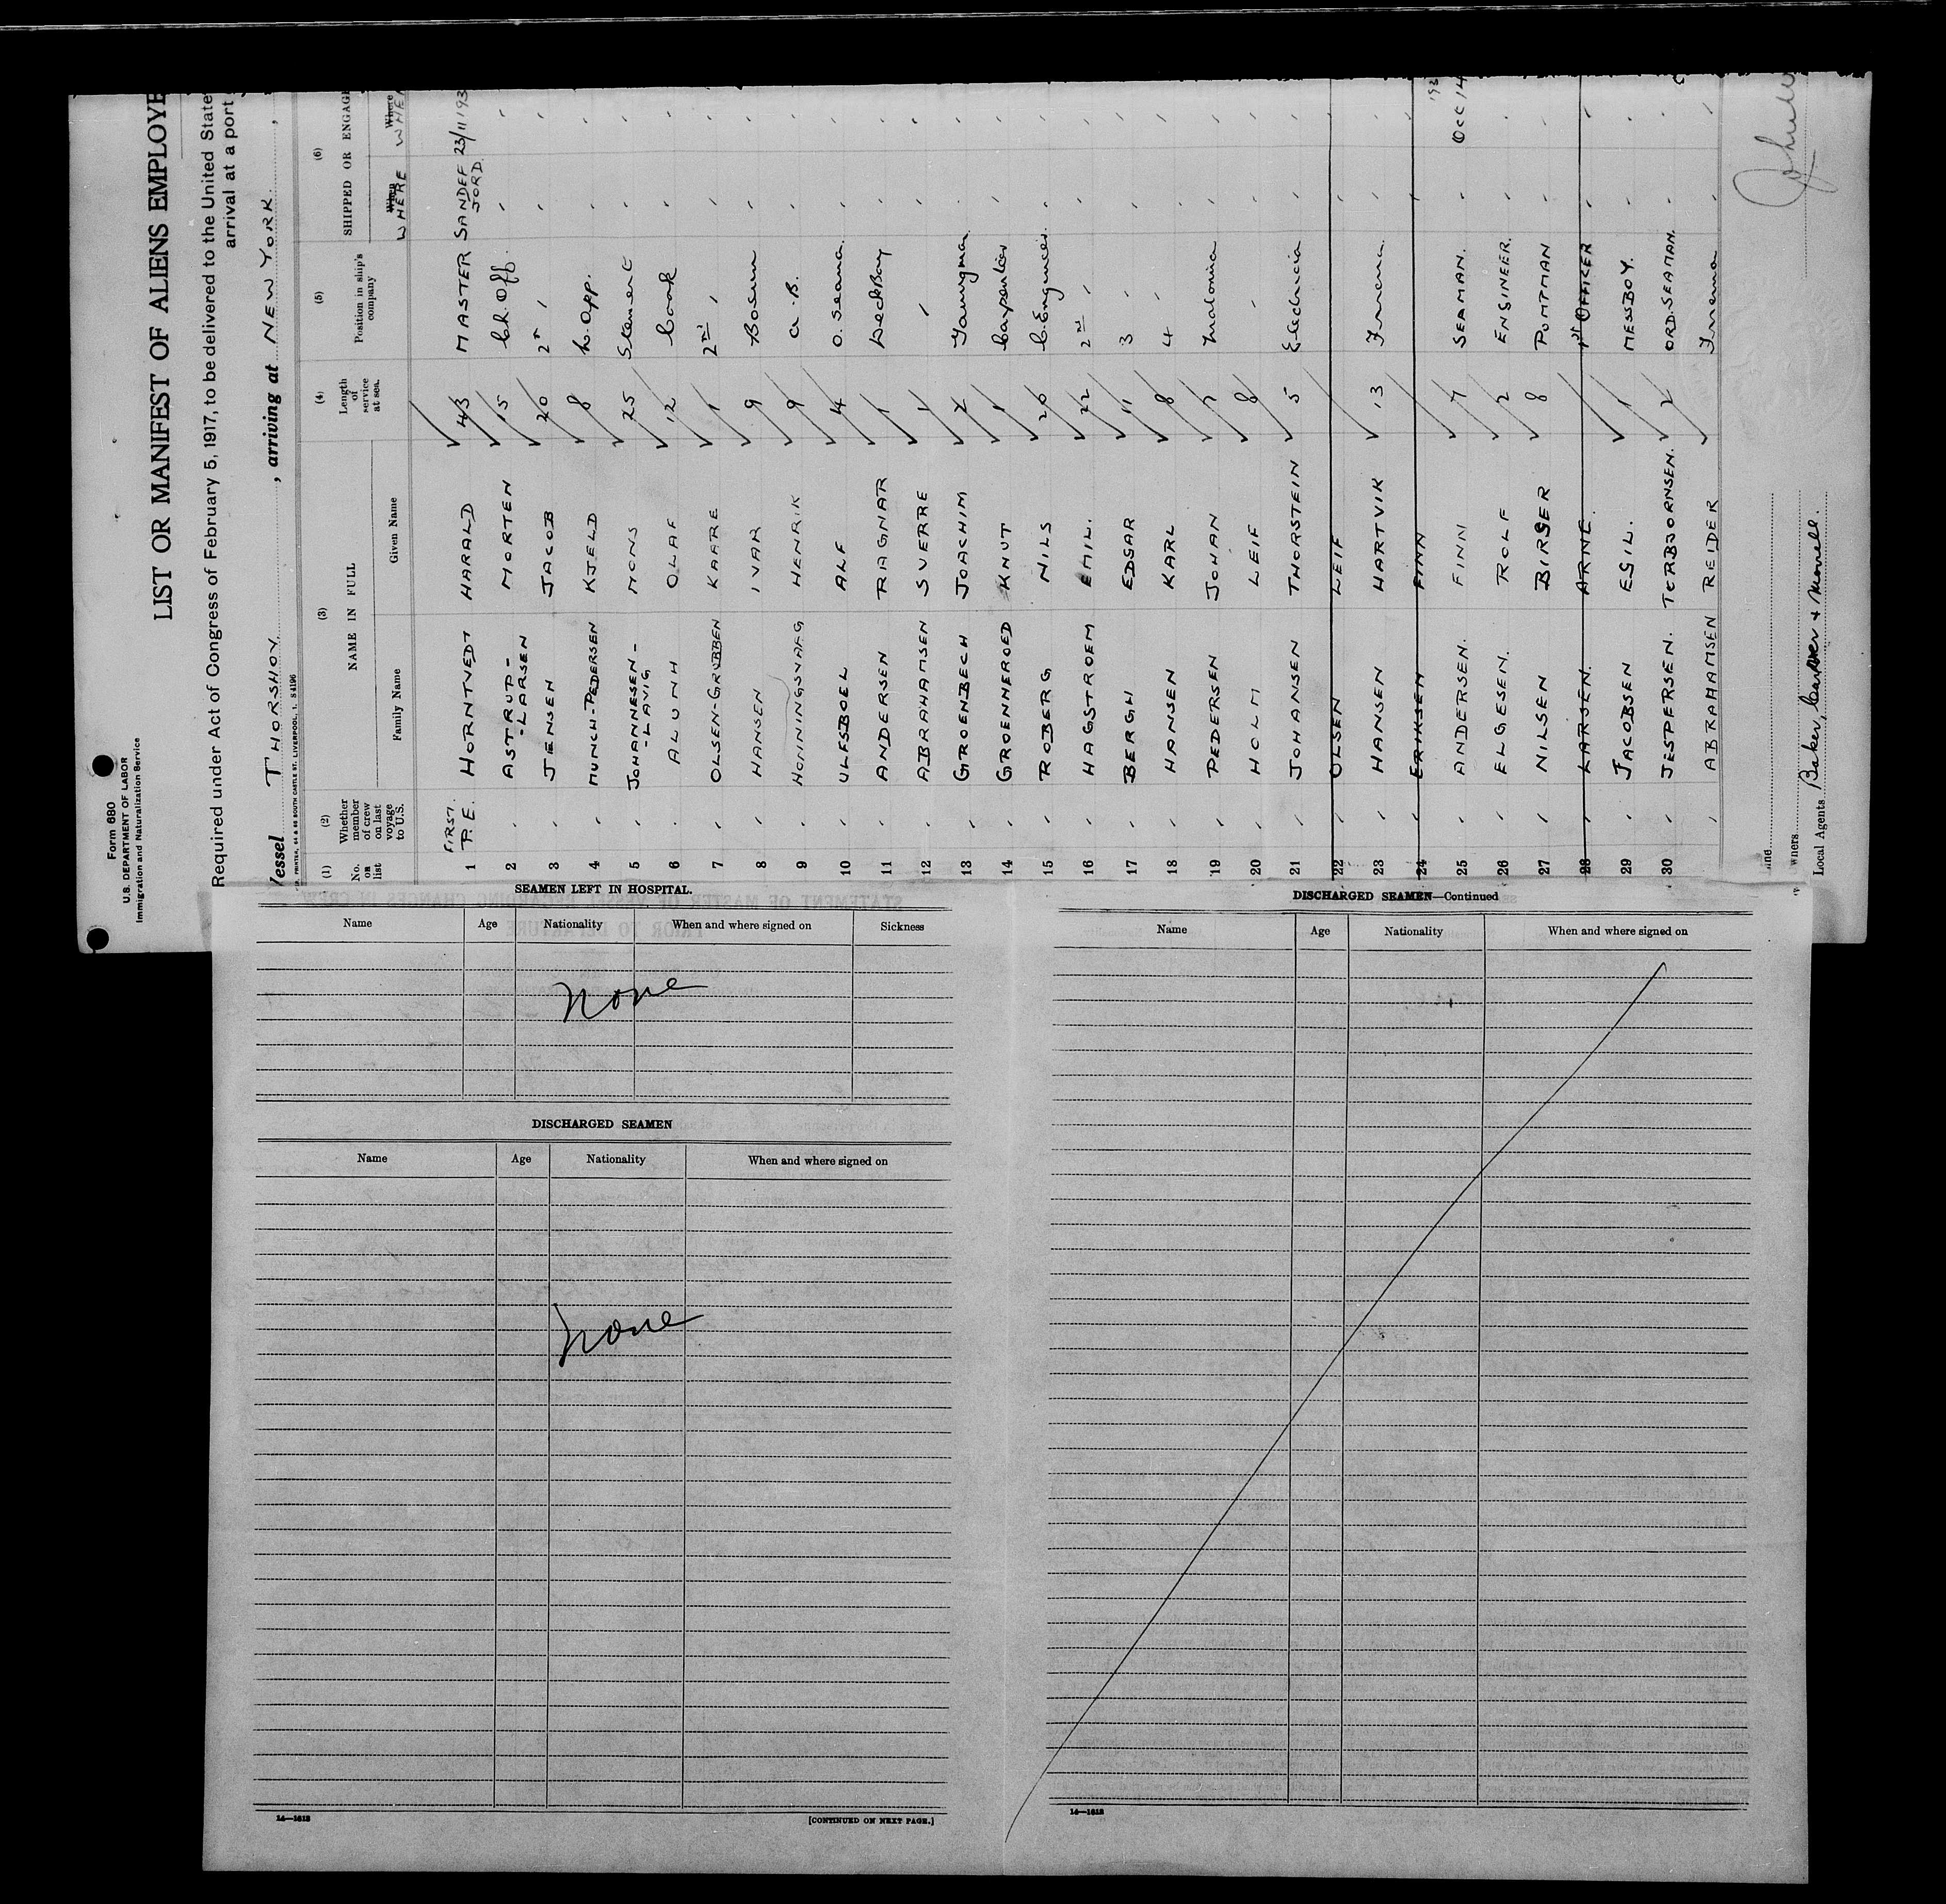 Form 680
U.S. DEPARTMENT OF LABOR
Immigration and Naturalization Service
LIST OR MANIFEST OF ALIENS EMPLOYE
Required under Act of Congress of February 5, 1917, to be delivered to the United State
arrival at a port
Vessel THORSHOV, arriving at NEW YORK.
(1) (2) (3) (4) (5) (6)
No. on list Whether member of crew on last voyage to U.S. NAME IN FULL Length of service at sea. Position in ship's company SHIPPED OR ENGAGE
Family Name Given Name WHERE WHEN
1 FIRST. P.E. HORNTVEDT HARALD 43 MASTER SANDEFJORD 23/11/193
2 " ASTRUP-LARSEN MORTEN 15 Ch. Off. " "
3 " JENSEN JACOB 20 2n " " "
4 " MUNCH-PEDERSEN KJELD 8 W. Opp. " "
5 " JOHANNESEN-LAVIG MONS 25 Steward " "
6 " ALUNH OLAF 12 Cook " "
7 " OLSEN-GRUBBEN KAARE 1 2nd " " "
8 " HANSEN IVAR 9 Bosun " "
9 " HONNINGSVAAG HENRIK 9 a. B. " "
10 " ULESBOEL ALF 4 O. Seaman " "
11 " ANDERSEN RAGNAR 1 Deckboy " "
12 " ABRAHAMSEN SVERRE 1 " " "
13 " GROENBECH JOACHIM 2 Youngman " "
14 " GROENNEROED KNUT 1 Carpenter " "
15 " ROBERG NILS 20 C. Engineer " "
16 " HAGSTROEM EMIL. 22 2nd " " "
17 " BERGH EDGAR 11 3 " " "
18 " HANSEN KARL 8 4 " " "
19 " PEDERSEN JOHAN 7 Motorman " "
20 " HOLM LEIF 8 " " "
21 " JOHANSEN THORSTEIN 5 Electricia " "
22 " OLSEN LEIF "
23 " HANSEN HARTVIK 13 Fireman " "
24 " ERIKSEN FINN "
25 " ANDERSEN. FINN 7 SEAMAN. " Oct 14 193
26 " ELGESEN. ROLF 2 ENGINEER. " "
27 " NILSEN BIRGER 8 PUMPMAN " "
28 " LARSEN. ARNE. 1st OFFICER " "
29 " JACOBSEN EGIL. 1 MESSBOY. " "
30 " JESPERSEN. TORBJORNSEN. 2 ORD. SEAMAN. " "
" ABRAHAMSEN REIDER Fireman " "
Line
Owners
Local Agents Baker, Carver & Morrell.
SEAMEN LEFT IN HOSPITAL.
Name Age Nationality When and where signed on Sickness
None
DISCHARGED SEAMEN
Name Age Nationality When and where signed on
None
14—1613 [CONTINUED ON NEXT PAGE.]
DISCHARGED SEAMEN—Continued
Name Age Nationality When and where signed on
14—1613